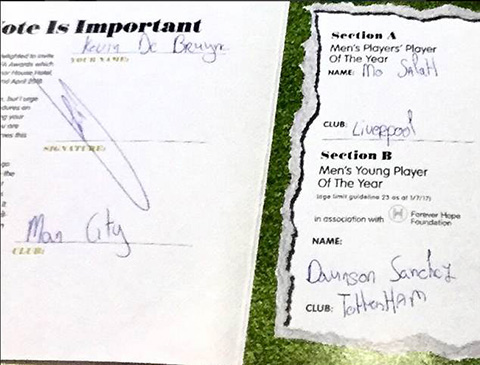 ote Is Important
Kevin De Bruyne
YOUR NAME:
elighted to invite
FA Awards which
or House Hotel,
nd April 2018
n, but I urge
atures on
ng your
you are
ves this
SIGNATURE:
go
the
Man City
CLUB:
Section A
Men's Players' Player
Of The Year
NAME: Mo Salah
CLUB: Liverpool
Section B
Men's Young Player
Of The Year
(age limit guideline 23 as at 1/7/17)
in association with Forever Hope
Foundation
NAME:
Davinson Sanchez
CLUB: TottenHAM